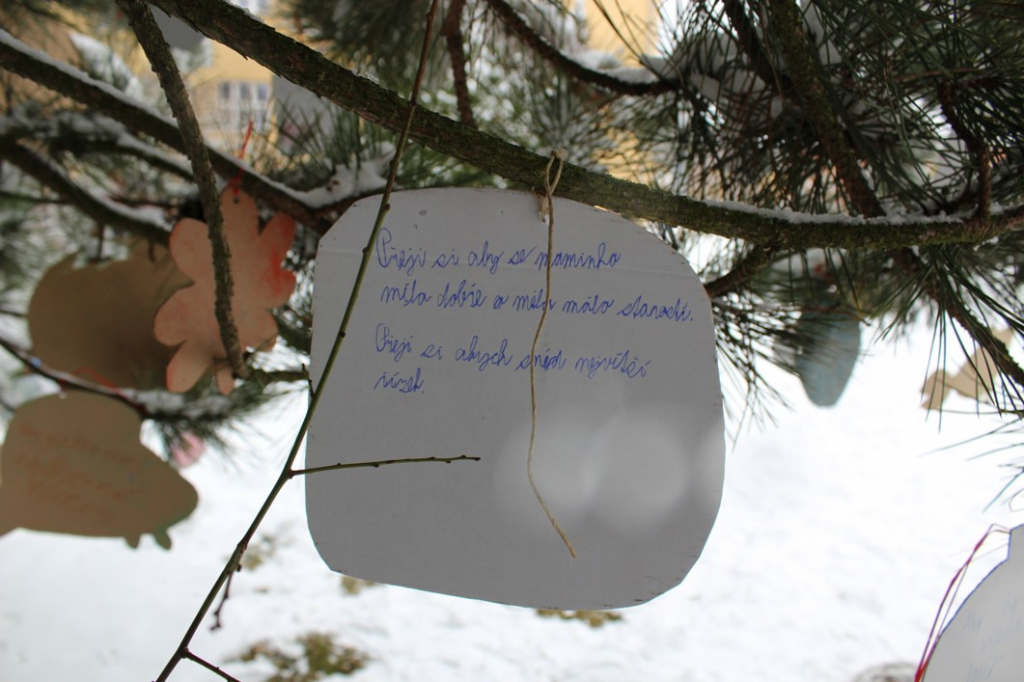 Přeji si aby se maminka
měla dobře a měla málo starostí.
Přeji si abych snědl největší
řízek.